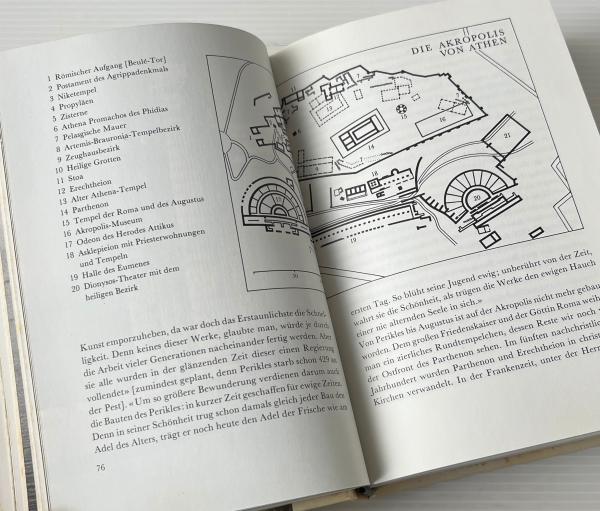 1 Römischer Aufgang [Beulé-Tor]
2 Postament des Agrippadenkmals
3 Niketempel
4 Propyläen
5 Zisterne
6 Athena Promachos des Phidias
7 Pelasgische Mauer
8 Artemis-Brauronia-Tempelbezirk
9 Zeughausbezirk
10 Heilige Grotten
11 Stoa
12 Erechtheion
13 Alter Athena-Tempel
14 Parthenon
15 Tempel der Roma und des Augustus
16 Akropolis-Museum
17 Odeon des Herodes Attikus
18 Asklepieion mit Priesterwohnungen
und Tempeln
19 Halle des Eumenes
20 Dionysos-Theater mit dem
heiligen Bezirk
Kunst emporzuheben, da war doch das Erstaunlichste die Schnel-
ligkeit. Denn keines dieser Werke, glaubte man, würde je durch
die Arbeit vieler Generationen nacheinander fertig werden. Aber
sie alle wurden in der glänzenden Zeit dieser einen Regierung
vollendet» [zumindest geplant, denn Perikles starb schon 429 an
der Pest]. «Um so größere Bewunderung verdienen darum auch
die Bauten des Perikles: in kurzer Zeit geschaffen für ewige Zeiten.
Denn in seiner Schönheit trug schon damals gleich jeder Bau den
Adel des Alters, trägt er noch heute den Adel der Frische wie am
76
DIE AKROPOLIS
VON ATHEN
12
7
13
15
14
16
21
18
20
19
ersten Tag. So blüht seine Jugend ewig; unberührt von der Zeit,
wahrt sie die Schönheit, als trügen die Werke den ewigen Hauch
einer nie alternden Seele in sich.»
Von Perikles bis Augustus ist auf der Akropolis nicht mehr gebaut
worden. Dem großen Friedenskaiser und der Göttin Roma weihte
man ein zierliches Rundtempelchen, dessen Reste wir noch
der Ostfront des Parthenon sehen. Im fünften nachchristlichen
Jahrhundert wurden Parthenon und Erechtheion in christliche
Kirchen verwandelt. In der Frankenzeit, unter der